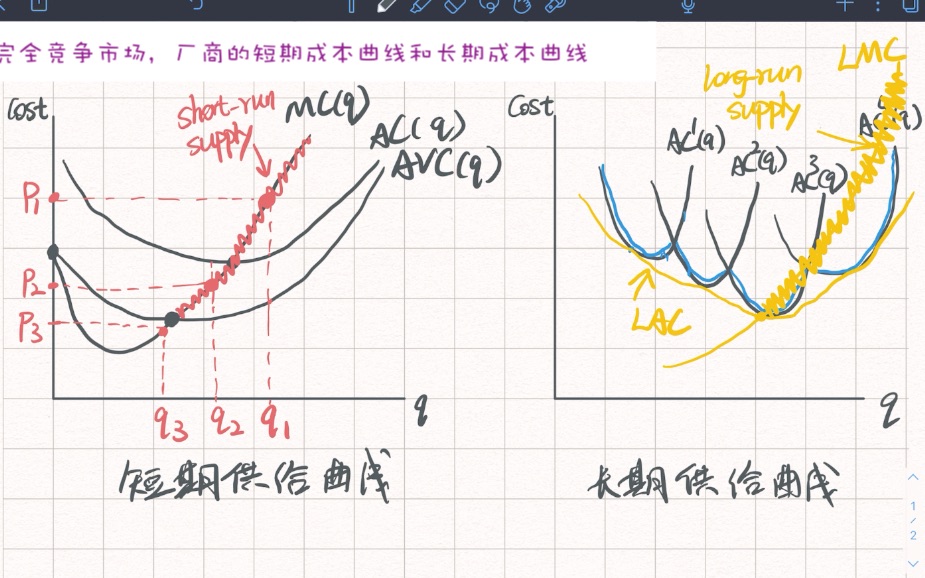 完全竞争市场，厂商的短期成本曲线和长期成本曲线
Cost
short-run
supply
MC(q)
AC(q)
AVC(q)
P1
P2
P3
q3
q2
q1
q
短期供给曲线
Cost
long-run
supply
LMC
AC¹(q)
AC²(q)
AC³(q)
LAC
q
长期供给曲线
1
/
2